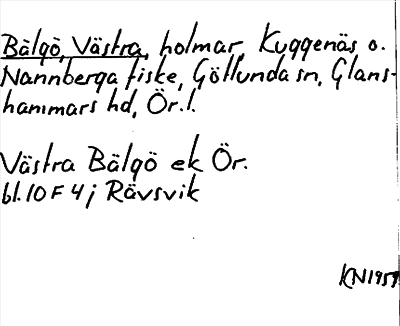 Bälgö, Västra, holmar, Kuggenäs o.
Nannberga fiske, Götlunda sn, Glans-
hammars hd, Ör. l.
Västra Bälgö ek Ör.
bl. 10 F 4 j Rävsvik
KN 1959